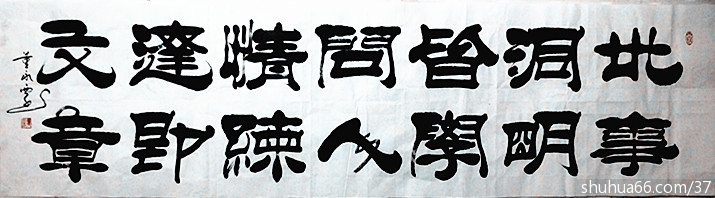 世事
洞明
皆學
問人
情練
達即
文章
shuhua66.com/37